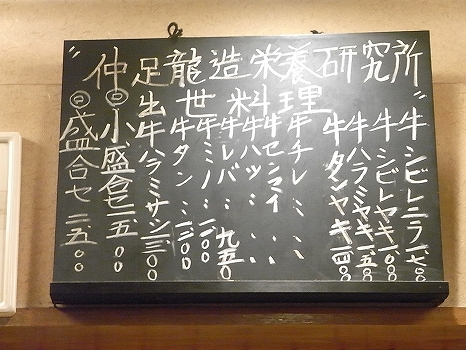 〝仲足龍造栄養研究所〟
出世料理
牛シビレニラ一七〇〇
牛シビレヤキ一六〇〇
牛ハラミヤキ一五〇〇
牛タンヤキ一四〇〇
牛チレ〃〃
牛センマイ〃〃
牛ハツ〃〃
牛レバ〃九五〇
牛ミノ〃一一〇〇
牛タン〃一三〇〇
牛ハラミサシ一三〇〇
◎小盛合セ一五〇〇
◎盛合セ二五〇〇